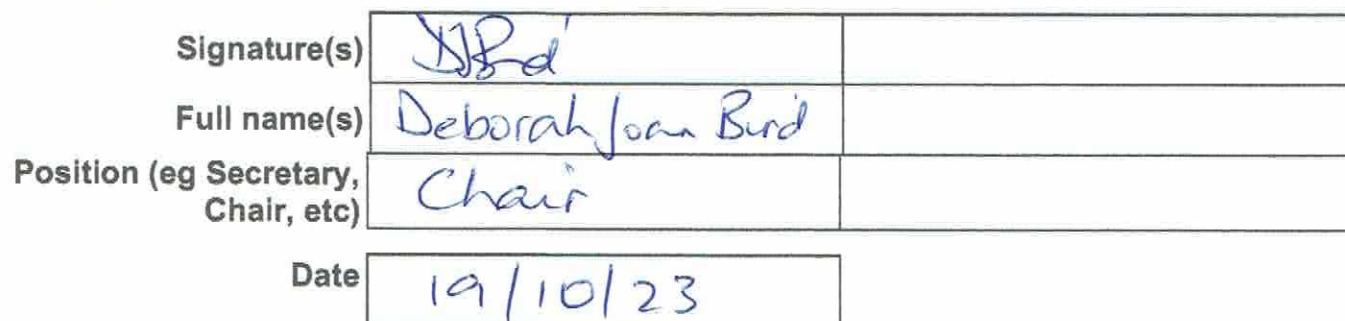 Signature(s) DJBird
Full name(s) Deborah Joan Bird
Position (eg Secretary,
Chair, etc) Chair
Date 19/10/23